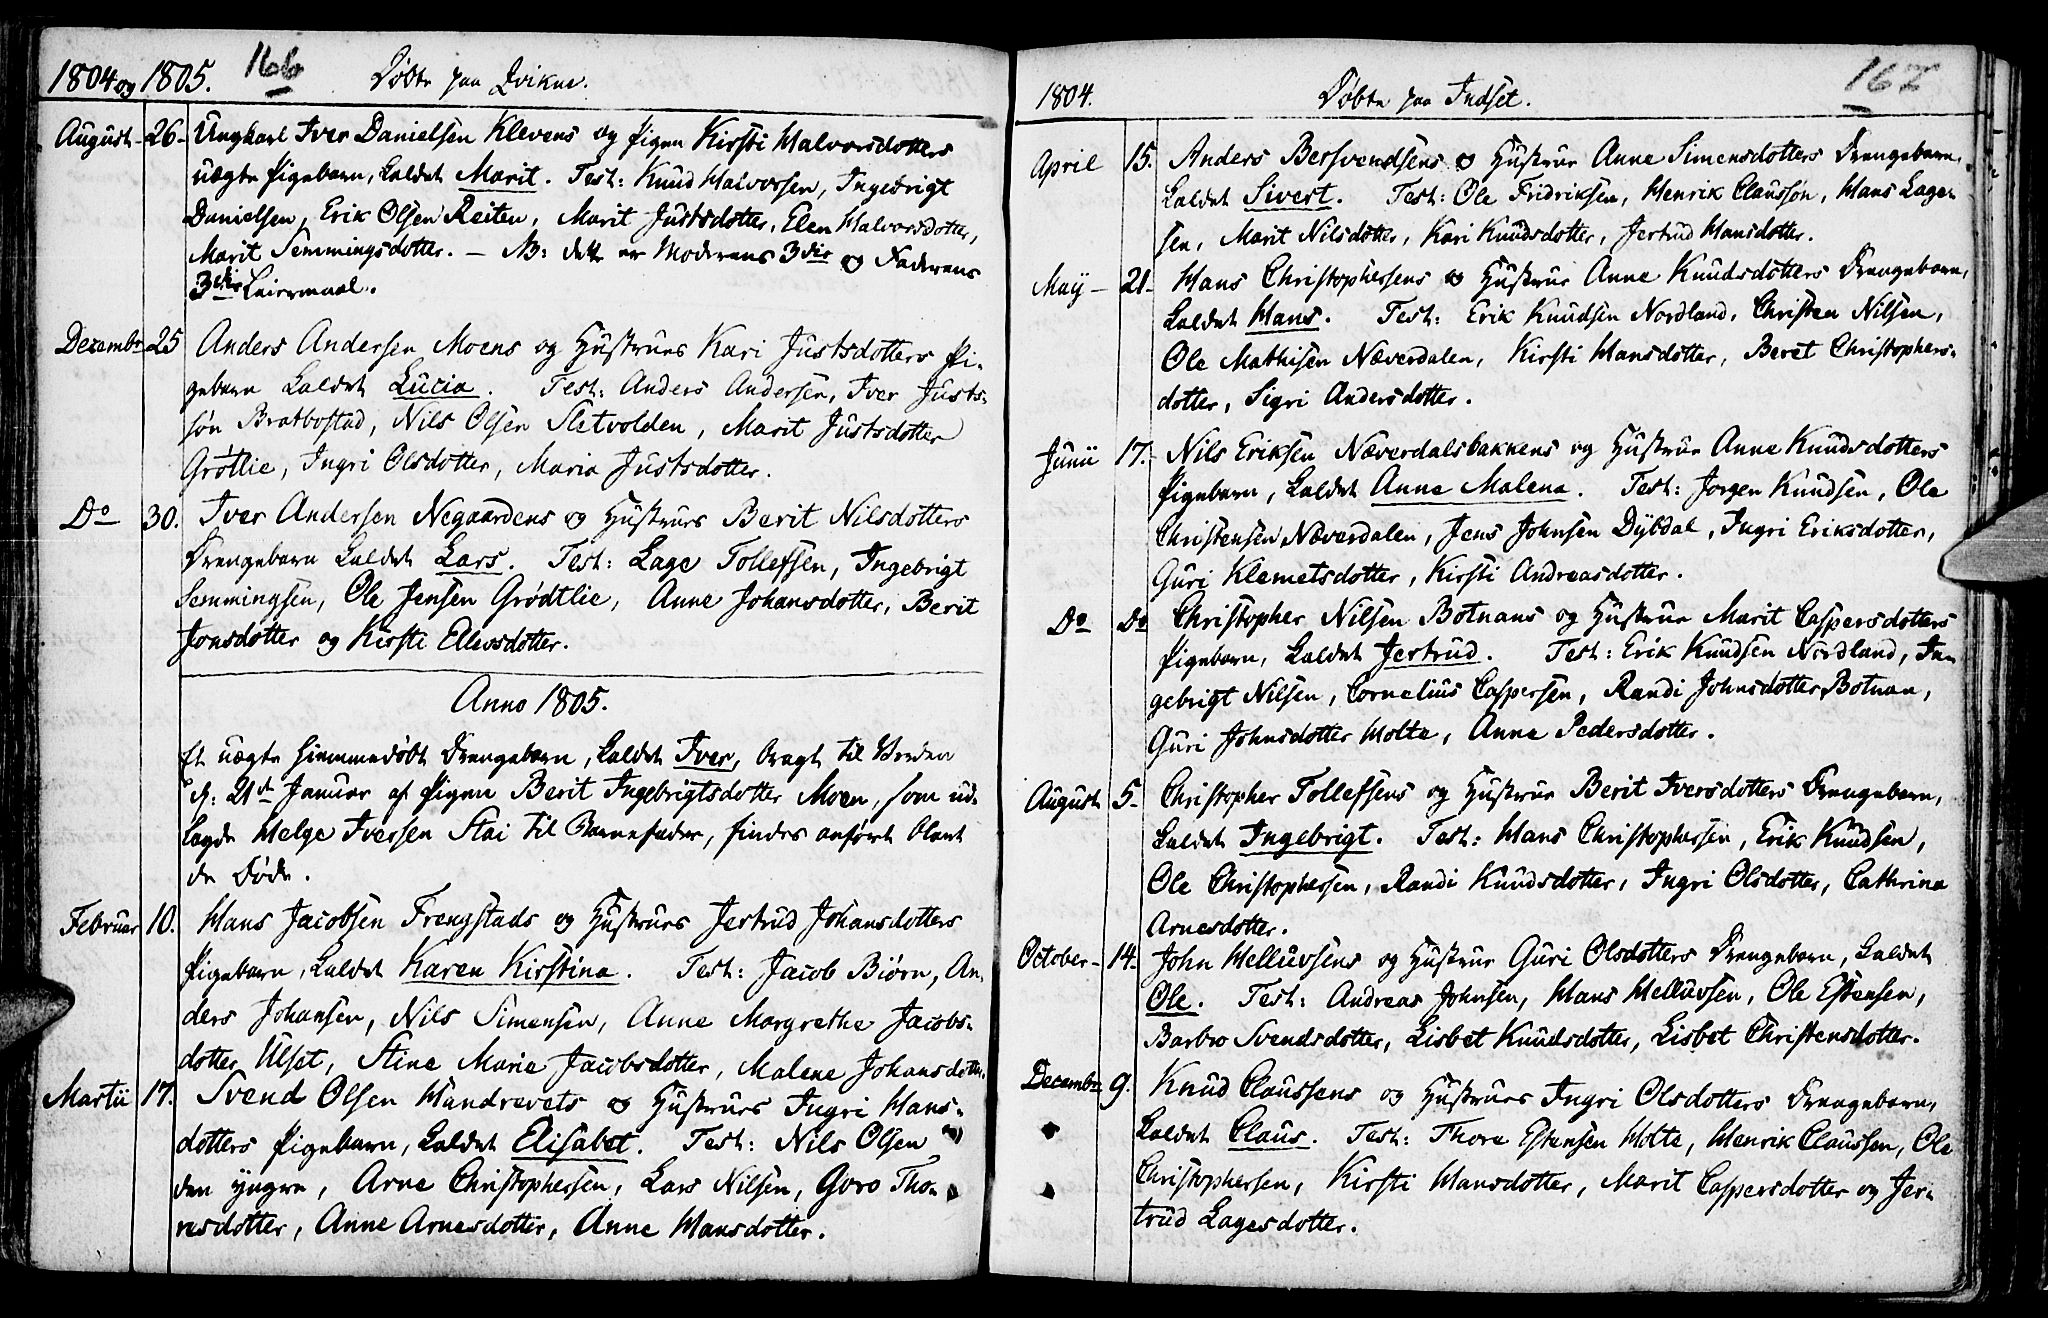 1804 og 1805. 166 Døbte paa Qvikne.
August 26 Ungkarl Iver Danielsen Klevens og Pigen Kirsti Halvorsdotters
uægte Pigebarn, kaldet Marit. Test: Knud Halvorsen, Ingebrigt
Danielsen, Erik Olsen Reiten, Marit Justsdotter, Elen Halvorsdotter,
Marit Semmingsdotter. – NB: dette er Moderens 3die og Faderens
3die Leiermaal.
Decembr 25 Anders Andersen Moens og Hustrues Kari Justsdotters Pi-
gebarn kaldet Lucia. Test: Anders Andersen, Iver Justs-
søn Bratbostad, Nils Olsen Sletvolden, Marit Justsdotter
Grøtlie, Ingri Olsdotter, Maria Justsdotter.
Do 30. Iver Andersen Negaardens og Hustrues Berit Nilsdotters
Drengebarn kaldet Lars. Test: Lage Tollefsen, Ingebrigt
Semmingsen, Ole Jensen Grødtlie, Anne Johansdotter, Berit
Jonsdotter og Kirsti Ellevsdotter.
Anno 1805.
Et uægte hiemmedøbt Drengebarn, kaldet Iver, bragt til Verden
d: 21de Januar af Pigen Berit Ingebrigtsdotter Moen, som ud-
lagde Helge Iversen Stai til Barnefader, findes anført blant
de Døde.
Februar 10. Hans Jacobsen Frengstads og Hustrues Jertrud Johansdotters
Pigebarn, kaldet Karen Kirstina. Test: Jacob Biørn, An-
ders Johansen, Nils Simensen, Anne Margrethe Jacobs-
dotter Ulset, Stine Marie Jacobsdotter, Malene Johansdotter.
Martii 17. Svend Olsen Handrevets og Hustrues Ingri Hans-
dotters Pigebarn, kaldet Elisabet. Test: Nils Olsen
den yngre, Arne Christophersen, Lars Nilsen, Goro Tho-
resdotter, Anne Arnesdotter, Anne Hansdotter.
1804. Døbte paa Indset. 167
April 15. Anders Bersvendsens og Hustrue Anne Simensdotters Drengebarn,
kaldet Sivert. Test: Ole Fridriksen, Henrik Claussøn, Hans Lage-
sen, Marit Nilsdotter, Kari Knudsdotter, Jertrud Hansdotter.
Maij 21 Hans Christophersens og Hustrue Anne Knudsdotters Drengebarn,
kaldet Hans. Test: Erik Knudsen Nordland, Christen Nilsen,
Ole Mathisen Næverdalen, Kirsti Hansdotter, Beret Christophers-
dotter, Sigri Andersdotter.
Junii 17. Nils Eriksen Næverdalsbakkens og Hustrue Anne Knudsdotters
Pigebarn, kaldet Anne Malena. Test: Jørgen Knudsen, Ole
Christensen Næverdalen, Jens Johnsen Dybdal, Ingri Eriksdotter,
Guri Klemetsdotter, Kirsti Andreasdotter.
Do Do Christopher Nilsen Botnans og Hustrue Marit Caspersdotters
Pigebarn, kaldet Jertrud. Test: Erik Knudsen Nordland, In-
gebrigt Nilsen, Cornelius Caspersen, Randi Johnsdotter Botnan,
Guri Johnsdotter Holte, Anne Pedersdotter.
August 5. Christopher Tollefsens og Hustrue Berit Iversdotters Drengebarn,
kaldet Ingebrigt. Test: Hans Christophersen, Erik Knudsen,
Ole Christophersen, Randi Knudsdotter, Ingri Olsdotter, Cathrina
Arnesdotter.
October 14. John Helluvsens og Hustrue Guri Olsdotters Drengebarn, kaldet
Ole. Test: Andreas Johnsen, Hans Helluvsen, Ole Estensen,
Barbro Svendsdotter, Lisbet Knudsdotter, Lisbet Christensdotter.
Decembr 9. Knud Claussens og Hustrues Ingri Olsdotters Drengebarn,
kaldet Claus. Test: Thore Estensen Holte, Henrik Claussen, Ole
Christophersen, Kirsti Hansdotter, Marit Caspersdotter og Jer-
trud Lagesdotter.